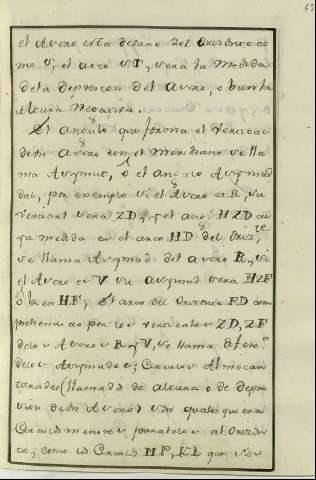 el Avero esta devajo del Orizonte co
mo S, el arco ST, sera la medida
dela depresion del Avero, o bien la
Altura Negativa.
El angulo que forma el Vertical
de un Avero con el Meridiano se lla
ma Azymut, ô el angulo Azymu
dal, por exemplo si el Avero es R, su
Vertical sera ZD, y el ang.º HZD cu
ya medida es el arco HD del Orizte.
se llama Azymud del avero R, si
el Avero es V su azymud sera HZF
ô bien HF; El arco del Orizonte FD com
prehendido por los verticales ZD, ZF
delos Averos R y V, se llama difera.
delos Azymudes; Circulos Almocan
tarades (llamados de altura o de depre
sion delos Averos) son quales quiera
Circulos menores paralelos al Orizon
te, como los Circulos MP, KL que son